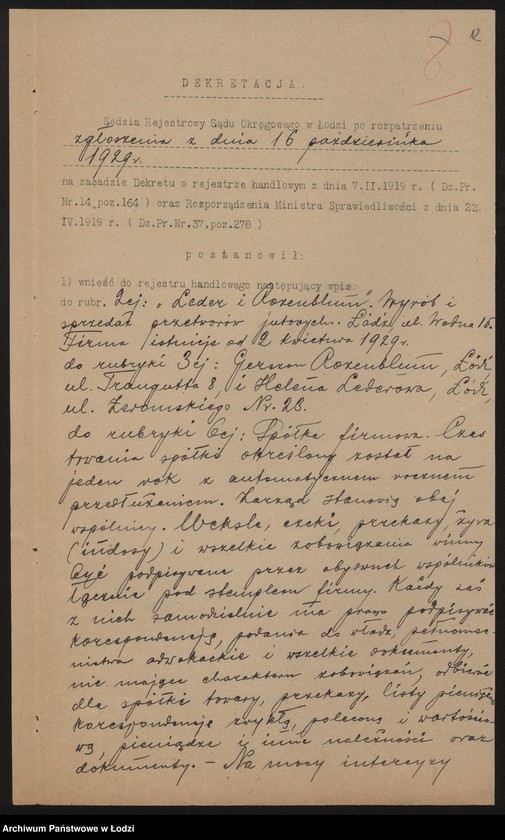 8 12
DEKRETACJA.
Sędzia Rejestrowy Sądu Okręgowego w Łodzi po rozpatrzeniu
zgłoszenia z dnia 16 października
1929 r.
na zasadzie Dekretu o rejestrze handlowym z dnia 7.II.1919 r. ( Dz.Pr.
Nr.14,poz.164 ) oraz Rozporządzenia Ministra Sprawiedliwości z dnia 22.
IV.1919 r. ( Dz.Pr.Nr.37,poz.278 )
postanowił:
1) wnieść do rejestru handlowego następujący wpis:
do rubr. 2ej: „Leder i Rozenblum". Wyrób i
sprzedaż przetworów jutowych. Łódź, ul. Wodna 15.
Firma istnieje od 2 kwietnia 1929 r.
do rubryki 3ej: Gerszon Rozenblum, Łódź,
ul. Traugutta 8, i Helena Lederowa, Łódź,
ul. Żeromskiego Nr. 23.
do rubryki 6ej: Spółka firmowa. Czas
trwania spółki określony został na
jeden rok z automatycznem rocznem
przedłużaniem. Zarząd stanowią obaj
wspólnicy. Weksle, czeki, przekazy, żyra
(indosy) i wszelkie zobowiązania winny
być podpisywane przez obydwuch wspólników
łącznie pod stemplem firmy. Każdy zaś
z nich samodzielnie ma prawo podpisywać
korespondencję, podania do władz, pełnomoc-
nictwa adwokackie i wszelkie dokumenty,
nie mające charakteru zobowiązań, odbierać
dla spółki towary, przekazy, listy pieniężne,
korespondencję zwykłą, poleconą i wartościo-
wą, pieniądze i inne należności oraz
dokumenty. – Na mocy intercyzy
Archiwum Państwowe w Łodzi